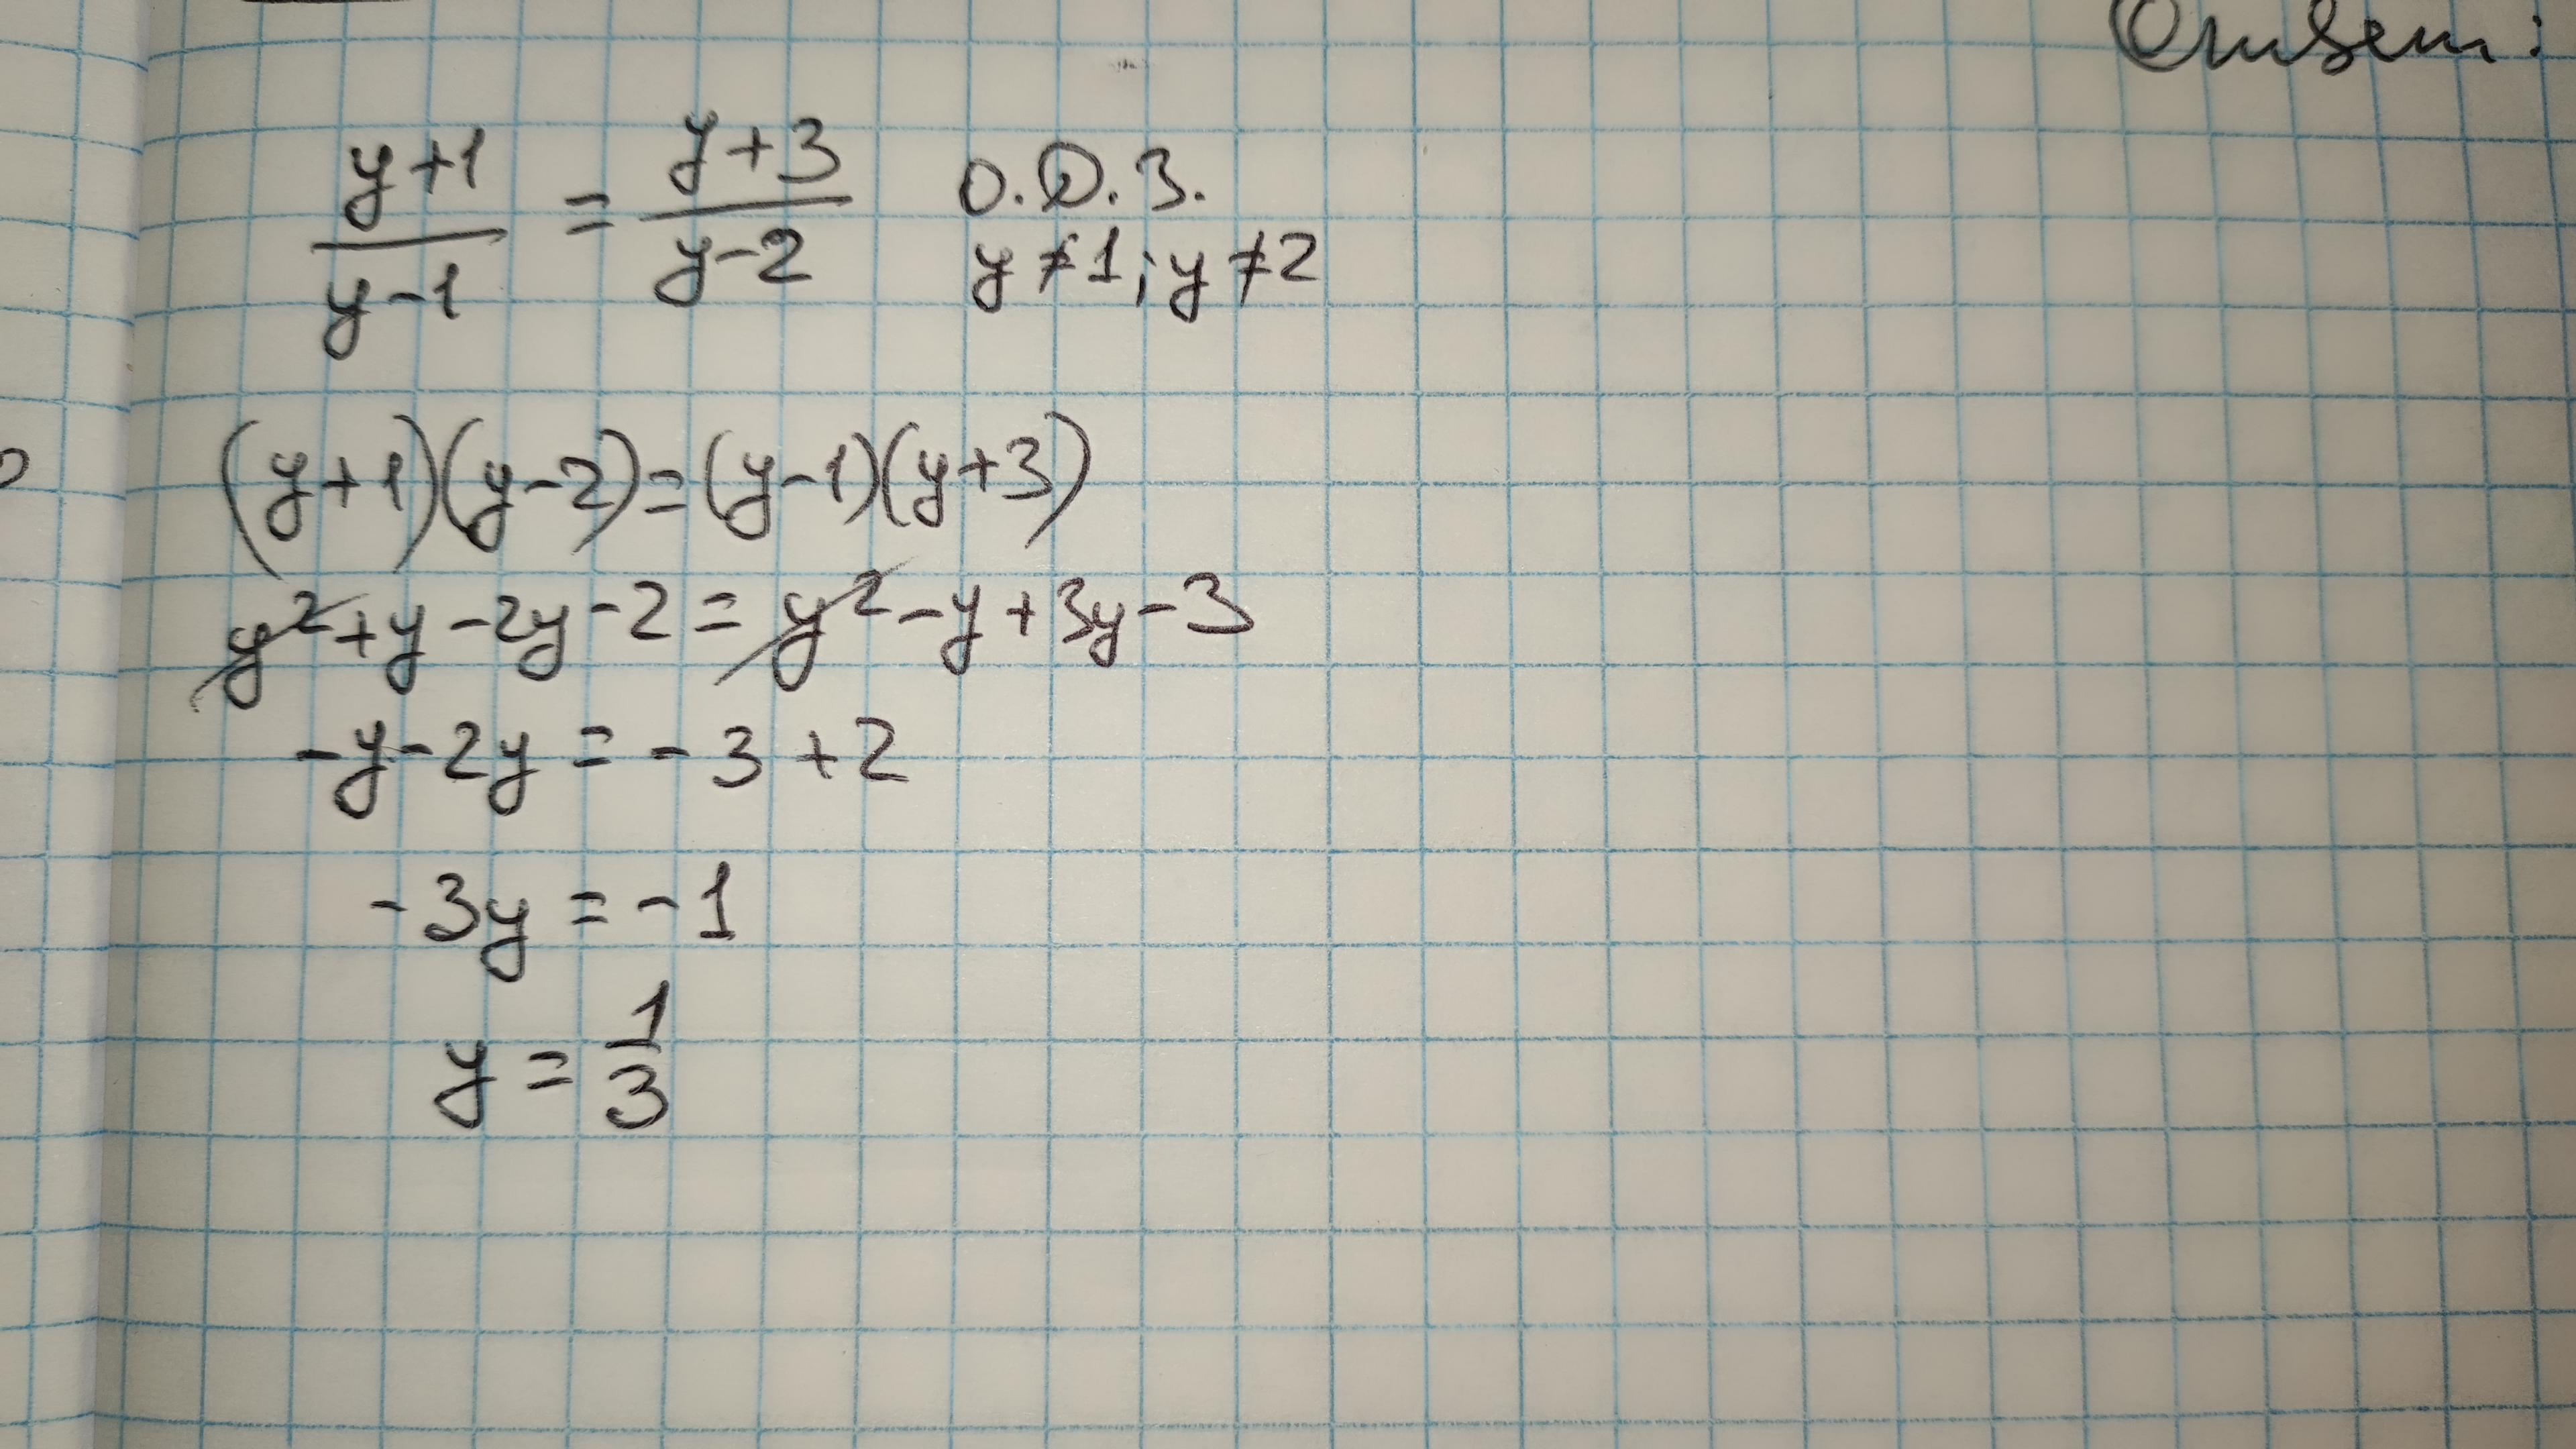 Ответ:
(y+1)/(y-1) = (y+3)/(y-2) О.Д.З.
y ≠ 1; y ≠ 2
(y+1)(y-2)=(y-1)(y+3)
y²+y-2y-2 = y²-y+3y-3
-y-2y = -3+2
-3y = -1
y = 1/3